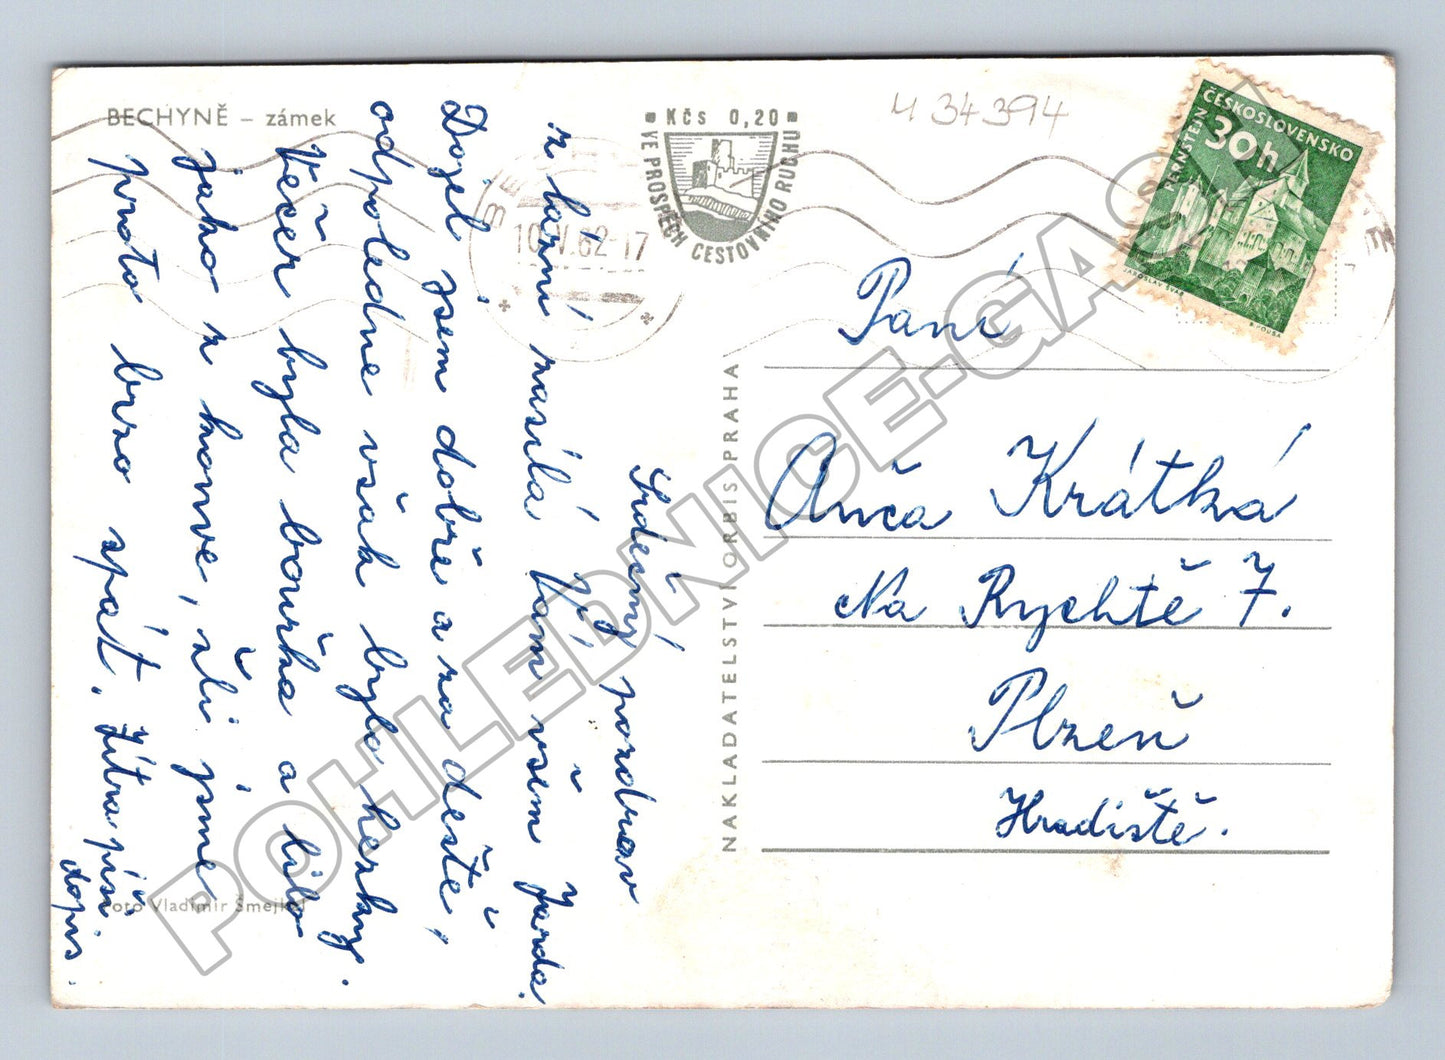 BECHYNĚ – zámek
Srdečný pozdrav
z lázní zasílá Vám všem Jarda.
Dojel jsem dobře a za deště,
odpoledne však bylo hezky.
Večer byla bouřka a lilo
jako z konve, šli jsme
proto brzo spát. Zítra píši
dopis.
Foto Vladimír Šmejkal
NAKLADATELSTVÍ ORBIS PRAHA
Kčs 0,20
VE PROSPĚCH CESTOVNÍHO RUCHU
10. V. 62-17
M 34394
ČESKOSLOVENSKO
30h
PERNŠTEJN
JAROSLAV ŠVÁB
B. HOUSA
Paní
Anča Krátká
Na Rychtě 7.
Plzeň
Hradiště.
POHLEDNICE-GASA